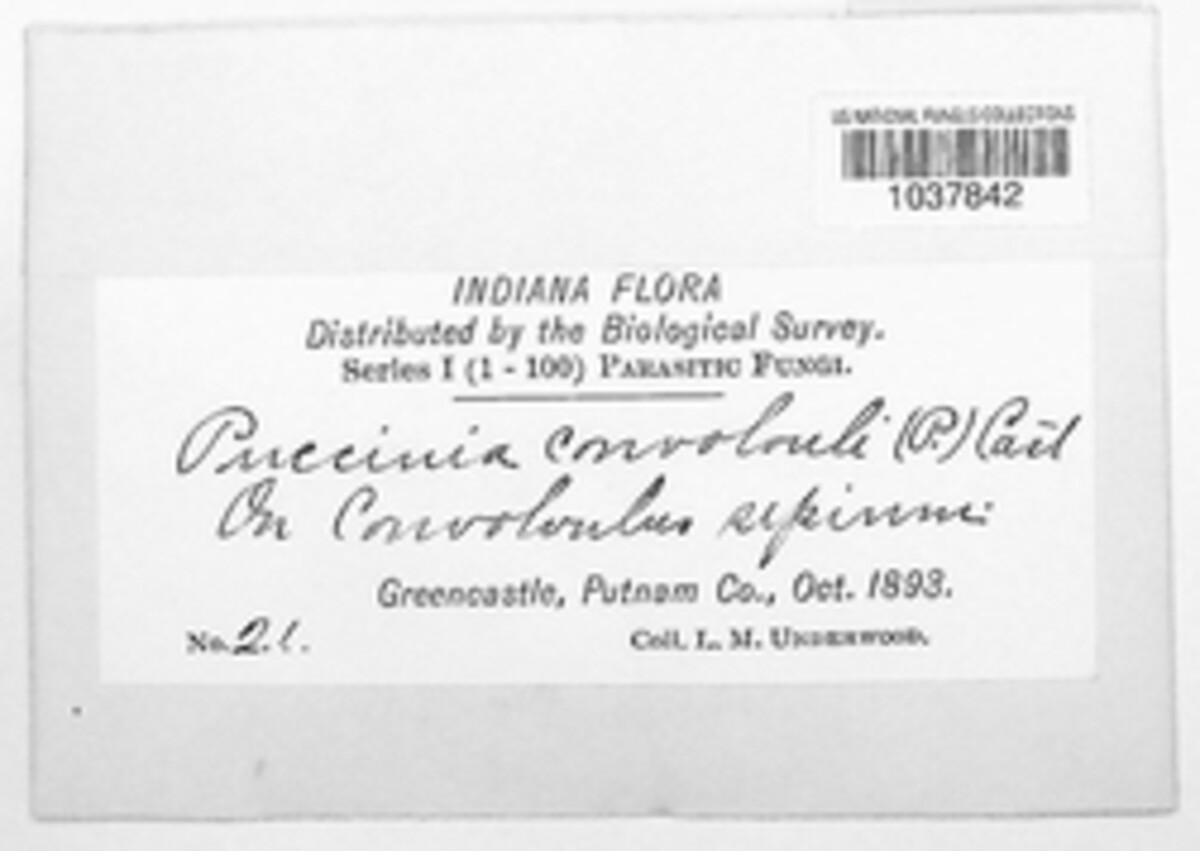 US NATIONAL FUNGUS COLLECTIONS
1037842
INDIANA FLORA
Distributed by the Biological Survey.
Series I (1 - 100) PARASITIC FUNGI.
Puccinia convolvuli (P.) Cast
On Convolvulus sepium.
Greencastle, Putnam Co., Oct. 1893.
No. 21.
Coll. L. M. UNDERWOOD.